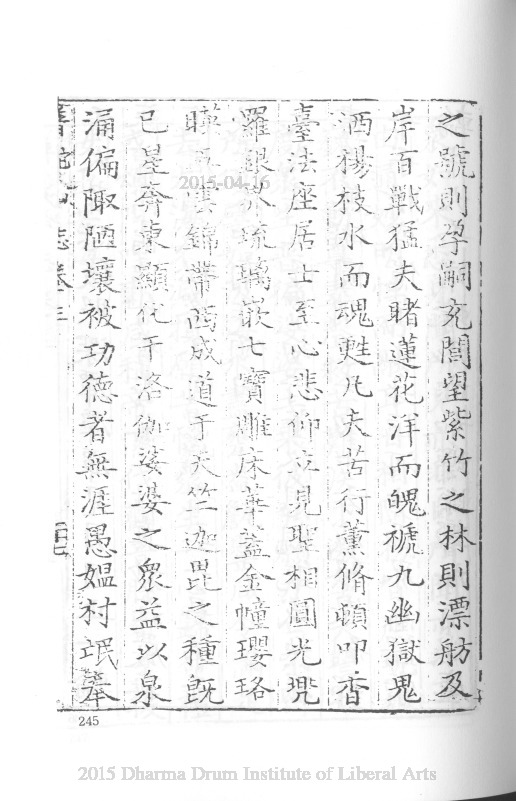 之號則孕嗣充閭望紫竹之林則漂舫及
岸百戰猛夫睹蓮花洋而魄褫九幽獄鬼
洒楊枝水而魂甦凡夫苦行薰脩頓叩香
臺法座居士至心悲仰立見聖相圓光兠
羅銀 琉璃嵌七寶雕床華葢金幢瓔珞
暎五雲錦帶西成道于天竺迦毘之種旣
已星奔東顯化干洛伽娑婆之衆益以泉
涌偏陬陋壤被功德者無涯愚媼村氓舉
志卷三
245
2015-04-16
2015 Dharma Drum Institute of Liberal Arts